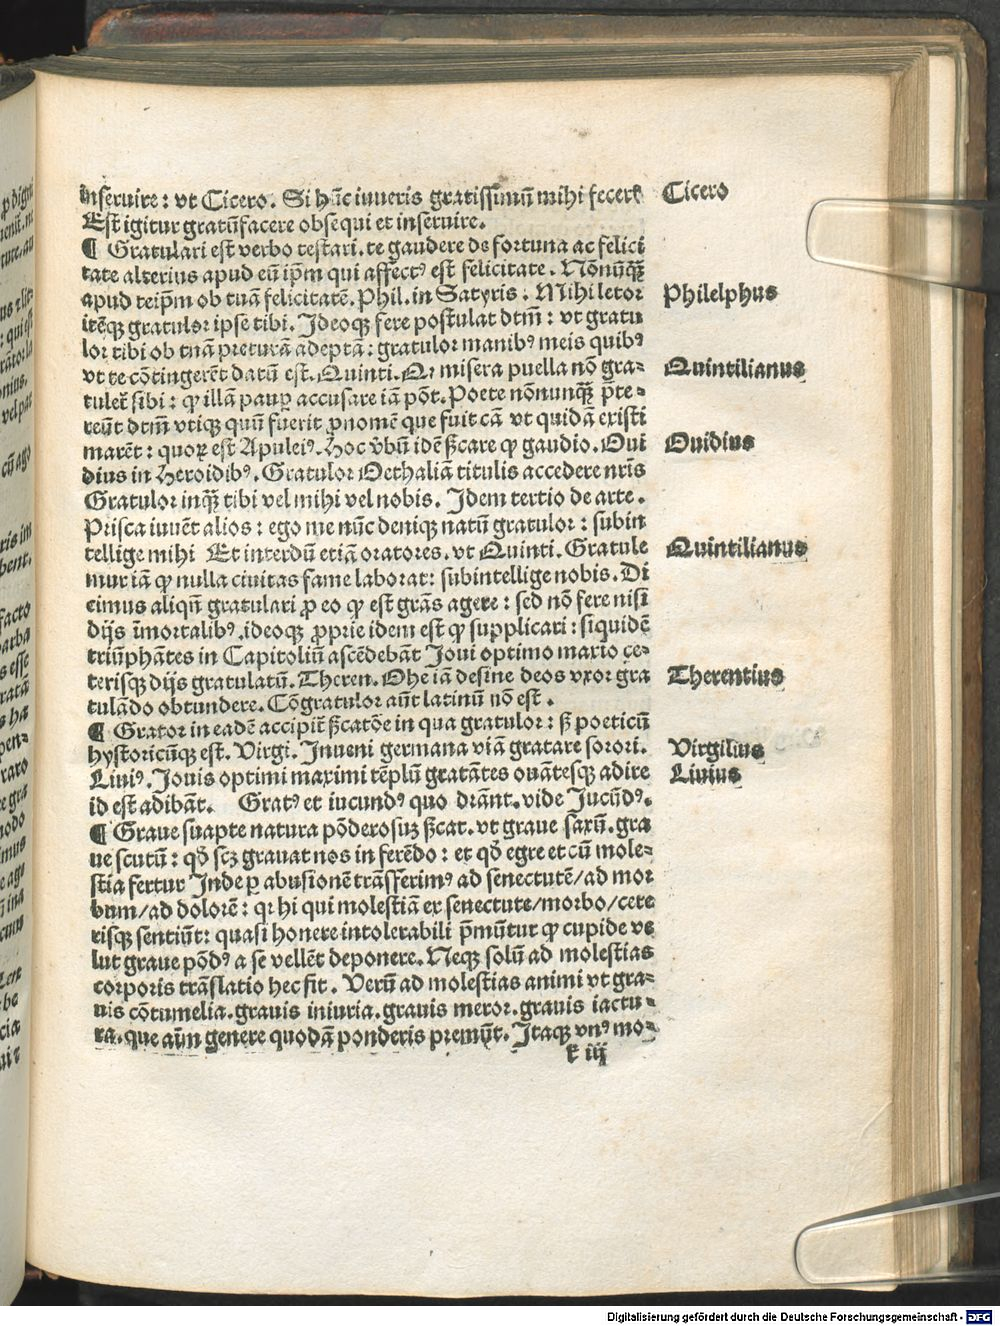 inseruire : vt Cicero. Si hũc iuueris gratissimũ mihi feceris Cicero
Est igitur gratũ facere obsequi et inseruire.
¶ Gratulari est verbo testari. te gaudere de fortuna ac felici
tate alterius apud eũ ip̃m qui affectꝰ est felicitate. Nonũqꝫ
apud teip̃m ob tuã felicitatẽ. Phil. in Satyris. Mihi letor Philelphus
itẽqꝫ gratulor ipse tibi. Ideoqꝫ fere postulat dtm̃ : vt gratu
lor tibi ob tuã preturã adeptã : gratulor manibꝰ meis quibꝰ
vt te cõtingerẽt datũ est. Quinti. Qꝛ misera puella nõ gra- Quintilianus
tuler̃ sibi : ꝙ illã pauꝑ accusare iã põt. Poete nonũnqꝫ p̃te-
reũt dtm̃ vtiqꝫ quũ fuerit ꝓnomẽ que fuit cã vt quidã existi
marẽt : quoꝝ est Apuleiꝰ. Hoc v̾bũ idẽ ꝭcare ꝙ gaudio. Oui Ouidius
dius in Heroidibꝰ. Gratulor Oethaliã titulis accedere nr̃is
Gratulor inqꝫ tibi vel mihi vel nobis. Idem tertio de arte.
Prisca iuuẽt alios : ego me nũc deniqꝫ natũ gratulor : subin
tellige mihi Et interdũ etiã oratores. vt Quinti. Gratule Quintilianus
mur iã ꝙ nulla ciuitas fame laborat : subintellige nobis. Di
cimus aliquñ gratulari ꝓ eo ꝙ est grãs agere : sed nõ fere nisi
dijs ĩmortalibꝰ. ideoqꝫ ꝓprie idem est ꝙ supplicari : siquidẽ
triũphãtes in Capitoliũ ascẽdebãt Ioui optimo maxīo ce-
terisqꝫ dijs gratulatũ. Theren. Ohe iã desine deos vxor gra Therentius
tulãdo obtundere. Cõgratulor aũt latinũ nõ est.
¶ Grator in eadẽ accipit̃ ꝭcatõe in qua gratulor : sꝫ poeticũ
hystoricũqꝫ est. Virgi. Inueni germana viã gratare sorori. Virgilius
Liuiꝰ. Iouis optimi maximi tẽplũ gratãtes ouãtesqꝫ adire Liuius
id est adibãt. Gratꝰ et iucundꝰ quo dr̃ant. vide Iucũdꝰ.
¶ Graue suapte natura põderosuꝫ ꝭcat. vt graue saxũ. gra
ue scutũ : qđ scꝫ grauat nos in ferẽdo : et qđ egre et cũ mole-
stia fertur Inde ꝑ abusionẽ trãsferimꝰ ad senectutẽ/ad mor
bum/ad dolorẽ : qꝛ hi qui molestiã ex senectute/morbo/cete
risqꝫ sentiũt : quasi honere intolerabili p̃mũtur ꝙ cupide ve
lut graue põdꝰ a se vellẽt deponere. Neqꝫ solũ ad molestias
corporis trãslatio hec fit. Verũ ad molestias animi vt gra-
uis cõtumelia. grauis iniuria. grauis meror. grauis iactu-
ra. que aĩm genere quodã ponderis premũt. Itaqꝫ vnꝰ mo-
k iij
Digitalisierung gefördert durch die Deutsche Forschungsgemeinschaft - DFG